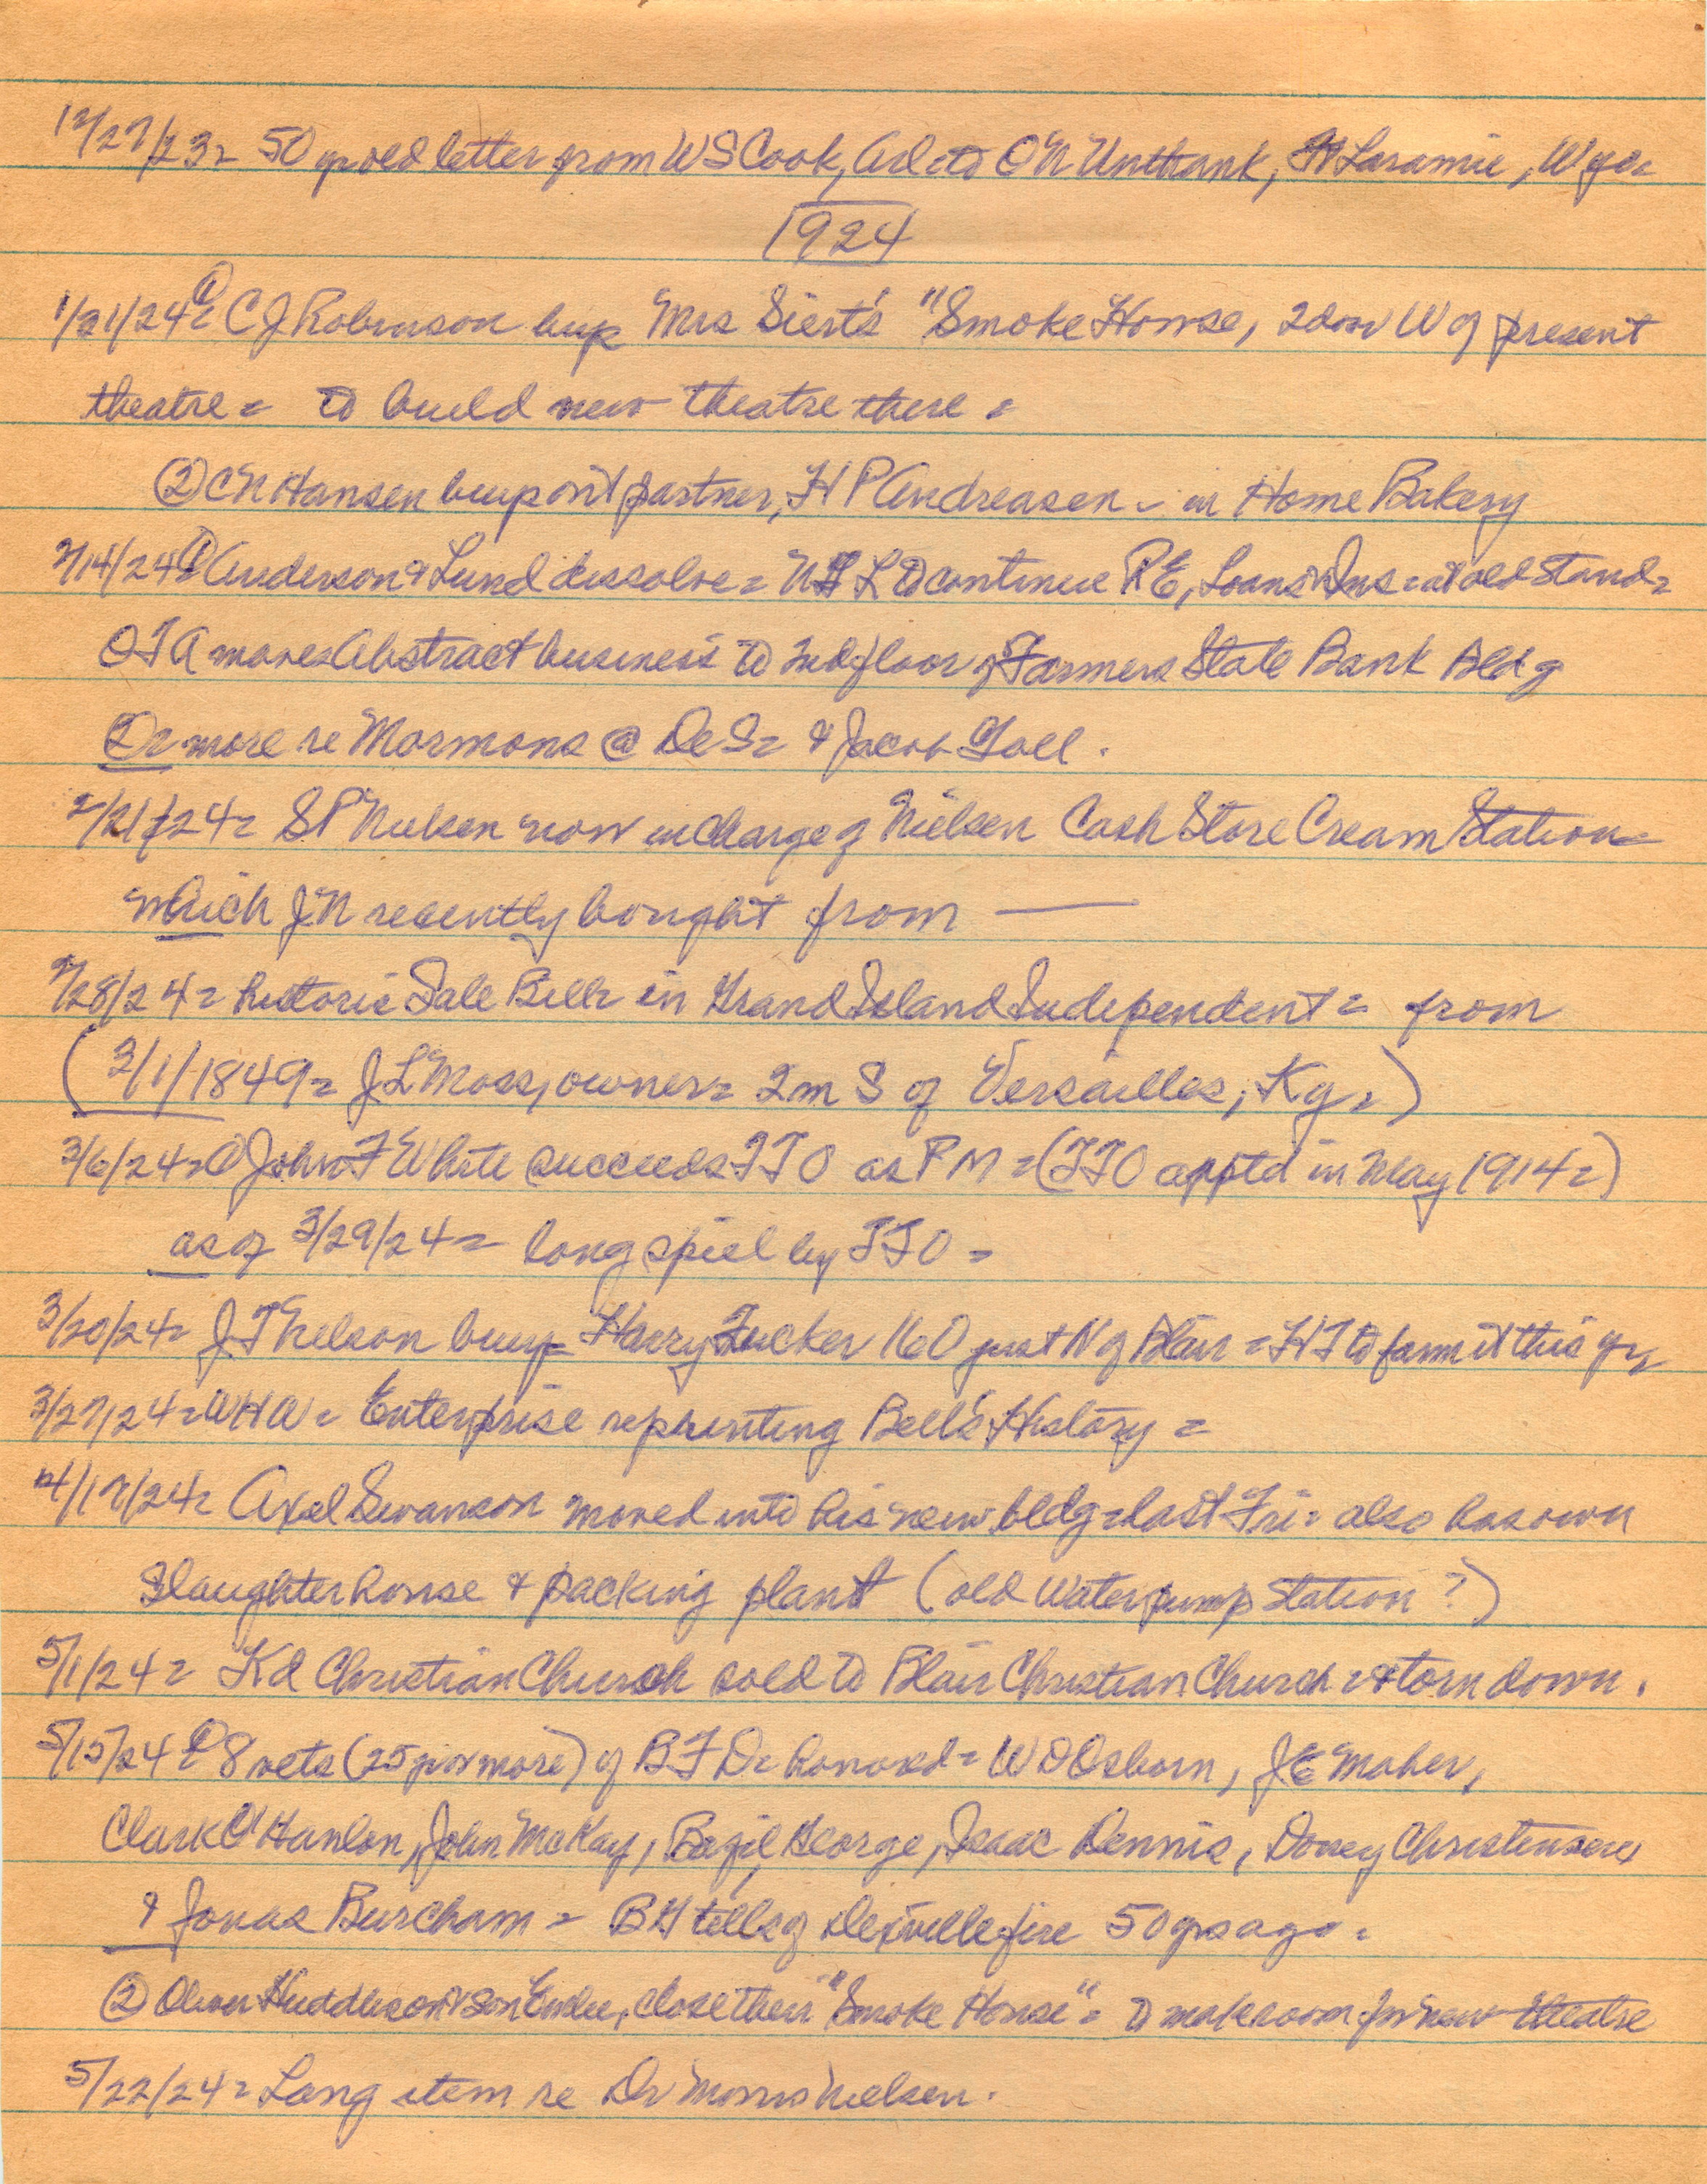 12/27/23= 50 yr old letter from W S Cook, Arl= to O N Unthank, Ft Laramie, Wyo=
1924
1/31/24= ① C J Robinson buys Mrs Siert's "Smoke House, 2 door W of present
theatre = to build new theatre there =
② C N Hansen buys out partner, H P Andreasen - in Home Bakery
2/14/24= ① Anderson & Lund dissolve = L to continue RE, Loans & Ins = at old stand =
O T A moves Abstract business to 2nd floor of Farmers State Bank Bldg
②= more re Mormons @ De S= & Jacob Goll.
2/21/24= S P Nielsen now in charge of Nielsen Cash Store Cream Station =
which J N recently bought from ——
2/28/24= historic Sale Bill= in Grand Island Independent = from
(3/1/1849= J L Moss, owner= 2 m S of Versailles, Ky.)
3/6/24= ① John F White succeeds T T O as P M = (T T O apptd in May 1914=)
as of 3/29/24= long spiel by T T O =
3/20/24= J T Nelson buys Harry Tucker 160 just N of Blair = H T to farm it this yr=
3/27/24= W H W= Enterprise reprinting Bell's History =
4/17/24= Axel Swanson moved into his new bldg = last Fri = also has own
Slaughter house & packing plant (old Water pump Station?)
5/1/24= Kd Christian Church sold to Blair Christian Church = & torn down.
5/15/24= ① 8 vets (25 yr or more) of B F D= honored = W D Osborn, J E Maher,
Clark O'Hanlon, John McKay, Bazil George, Isaac Dennis, Dorsey Christensen
& Jonas Burcham = B G tells of fire 50 yrs ago =
② Oliver Huddleson & son close their "Smoke House" = to make room for new theatre
5/22/24= Long item re Dr Morris Nielsen.